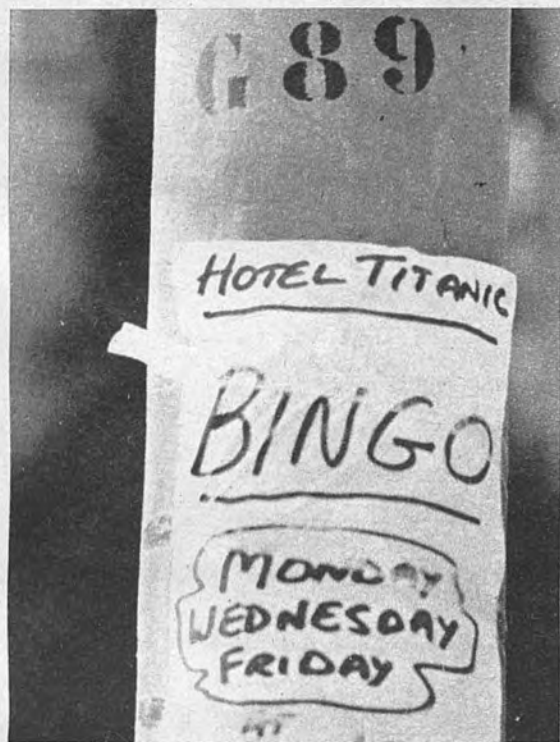 G 89
HOTEL TITANIC
BINGO
MONDAY
WEDNESDAY
FRIDAY